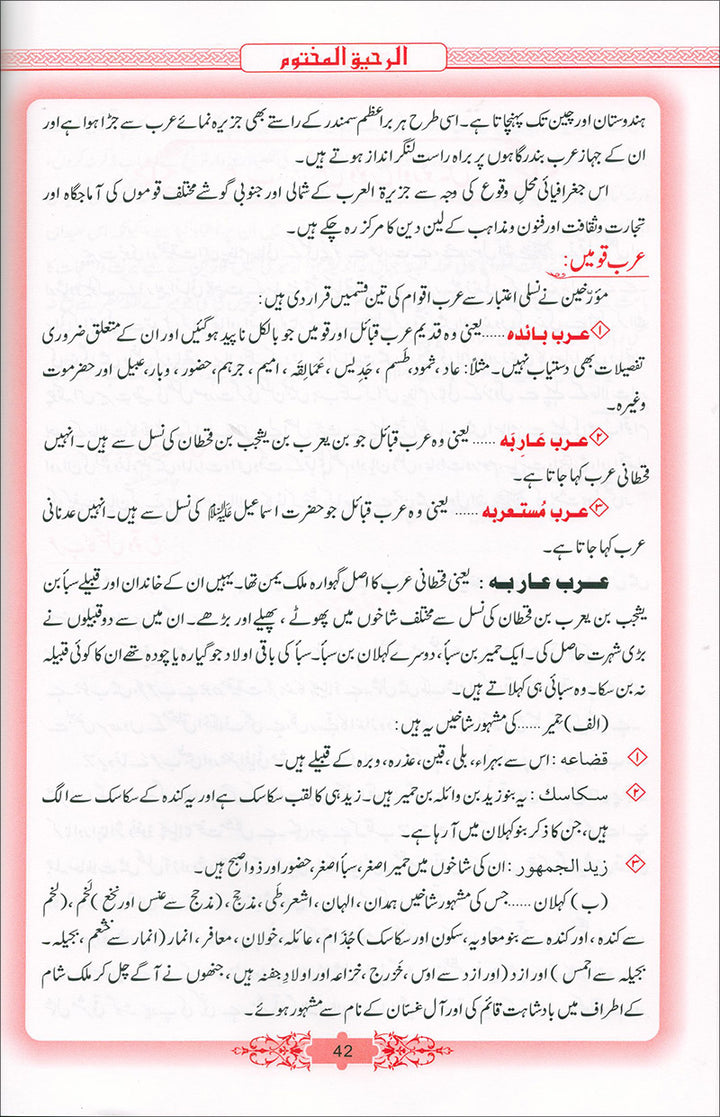 الرحیق المختوم
ہندوستان اور چین تک پہنچاتا ہے۔ اسی طرح ہر براعظم سمندر کے راستے بھی جزیرہ نمائے عرب سے جڑا ہوا ہے اور
ان کے جہاز عرب بندرگاہوں پر براہ راست لنگر انداز ہوتے ہیں۔
اس جغرافیائی محلِ وقوع کی وجہ سے جزیرۃ العرب کے شمالی اور جنوبی گوشے مختلف قوموں کی آماجگاہ اور
تجارت و ثقافت اور فنون و مذاہب کے لین دین کا مرکز رہ چکے ہیں۔
عرب قومیں:
مؤرخین نے نسلی اعتبار سے عرب اقوام کی تین قسمیں قرار دی ہیں:
۱ عرب بائدہ......یعنی وہ قدیم عرب قبائل اور قومیں جو بالکل ناپید ہوگئیں اور ان کے متعلق ضروری
تفصیلات بھی دستیاب نہیں۔ مثلاً: عاد، ثمود، طسم، جَدِیس، عَمَالِقَہ، امیم، جرہم، حضور، وبار، عبیل اور حضرموت
وغیرہ۔
۲ عرب عَارِبَہ ...... یعنی وہ عرب قبائل جو بن یعرب بن یشجب بن قحطان کی نسل سے ہیں۔ انہیں
قحطانی عرب کہا جاتا ہے۔
۳ عرب مُستعربہ ...... یعنی وہ عرب قبائل جو حضرت اسماعیل علیہ السلام کی نسل سے ہیں۔ انہیں عدنانی
عرب کہا جاتا ہے۔
عرب عاربہ : یعنی قحطانی عرب کا اصل گہوارہ ملک یمن تھا۔ یہیں ان کے خاندان اور قبیلے سبأ بن
یشجب بن یعرب بن قحطان کی نسل سے مختلف شاخوں میں پھوٹے، پھیلے اور بڑھے۔ ان میں سے دو قبیلوں نے
بڑی شہرت حاصل کی۔ ایک حمیر بن سبأ، دوسرے کہلان بن سبأ۔ سبأ کی باقی اولاد جو گیارہ یا چودہ تھے ان کا کوئی قبیلہ
نہ بن سکا۔ وہ سبائی ہی کہلاتے ہیں۔
(الف) حمیر ......کی مشہور شاخیں یہ ہیں:
۱ قضاعہ : اس سے بہراء، بلی، قین، عذرہ، وبرہ کے قبیلے ہیں۔
۲ سکاسک : یہ بنو زید بن وائلہ بن حمیر ہیں۔ زید ہی کا لقب سکاسک ہے اور یہ کندہ کے سکاسک سے الگ
ہیں، جن کا ذکر بنو کہلان میں آرہا ہے۔
۳ زید الجمہور : ان کی شاخوں میں حمیر اصغر، سبأ اصغر، حضور اور ذواصبح ہیں۔
(ب) کہلان ......جس کی مشہور شاخیں ہمدان، الہان، اشعر، طَی، مذحج، (مذحج سے عنس اور نخع) لَخْم، (لخم
سے کندہ، اور کندہ سے بنو معاویہ، سکون اور سکاسک) جُذام، عائلہ، خولان، معافر، انمار (انمار سے خثعم، بجیلہ۔
بجیلہ سے احمس) اور ازد (اور ازد سے اوس، خَزرج، خزاعہ اور اولادِ جفنہ ہیں، جنھوں نے آگے چل کر ملک شام
کے اطراف میں بادشاہت قائم کی اور آل غسّان کے نام سے مشہور ہوئے۔
42